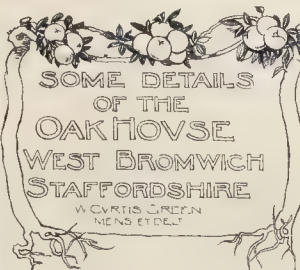 SOME DETAILS
OF THE
OAK HOVSE
WEST BROMWICH
STAFFORDSHIRE
W CVRTIS GREEN
MENS ET DELT